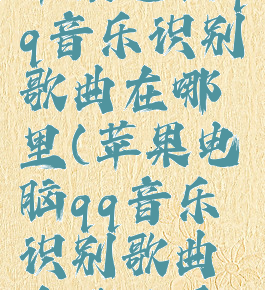 q音乐识别
歌曲在哪
里(苹果电
脑qq音乐
识别歌曲